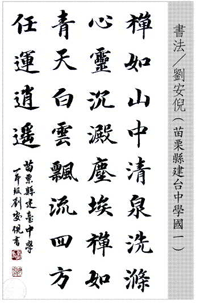 書法／劉安倪（苗栗縣建台中學國一）
禪如山中清泉洗滌
心靈沉澱塵埃禪如
青天白雲飄流四方
任運逍遙
苗栗縣建臺中學
一年級劉安倪書